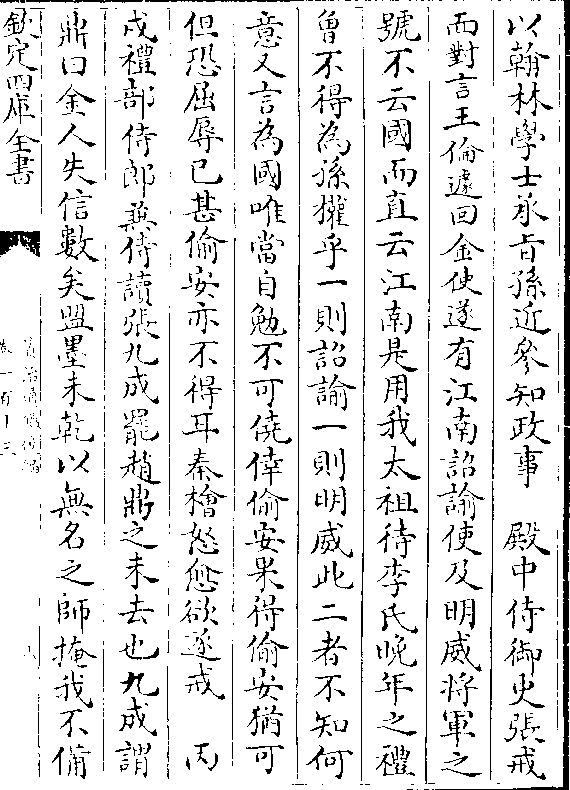 以翰林學士承旨孫近參知政事　殿中侍御史張戒
面對言王倫遽回金使遂有江南詔諭使及明威將軍之
號不云國而直云江南是用我太祖待李氏晚年之禮
曾不得為孫權乎一則詔諭一則明威此二者不知何
意又言為國唯當自勉不可僥倖偷安果得偷安猶可
但恐屈辱已甚偷安亦不得耳秦檜怒愈欲逐戒　丙
戌禮部侍郎兼侍讀張九成罷趙鼎之未去也九成謂
鼎曰金人失信數矣盟墨未乾以無名之師掩我不備
欽定四庫全書
卷一百十三